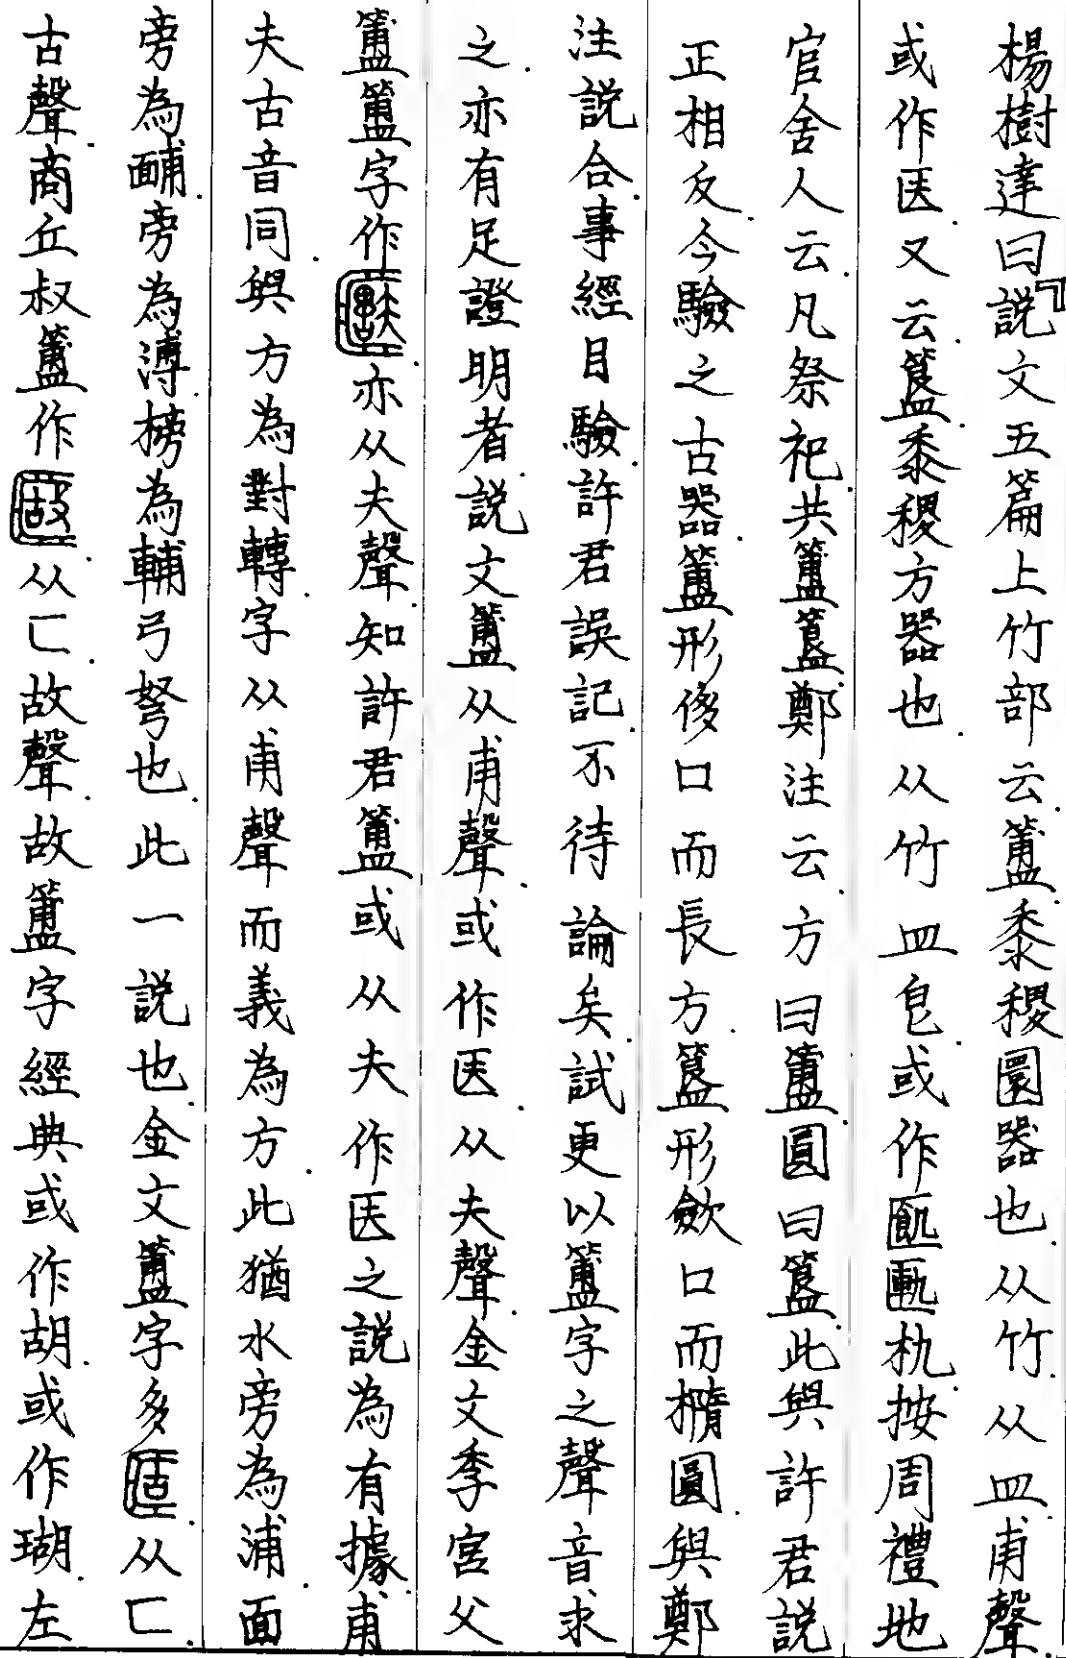 楊樹達曰「説文五篇上竹部云.簠黍稷圜器也.从竹.从皿甫聲.
或作匧.又云簋黍稷方器也.从竹皿皀.或作匭匭朹.按周禮地
官舍人云.凡祭祀.共簠簋.鄭注云.方曰簠圓曰簋.此與許君説
正相反.今驗之古器簠形侈口而長方.簋形斂口而橢圓.與鄭
注説合事經目驗.許君誤記.不待論矣.試更以簠字之聲音求
之.亦有足證明者.説文簠从甫聲.或作匧.从夫聲.金文季宮父
簠簠字作亦从夫聲.知許君簠或从夫作匧之説為有據.甫
夫古音同.與方為對轉.字从甫聲而義為方.此猶水旁為浦.面
旁為䩉.旁為溥.榜為輔弓弩也.此一説也.金文簠字多从匚.
古聲.商丘叔簠作.从匚.故聲.故簠字經典或作胡.或作瑚.左